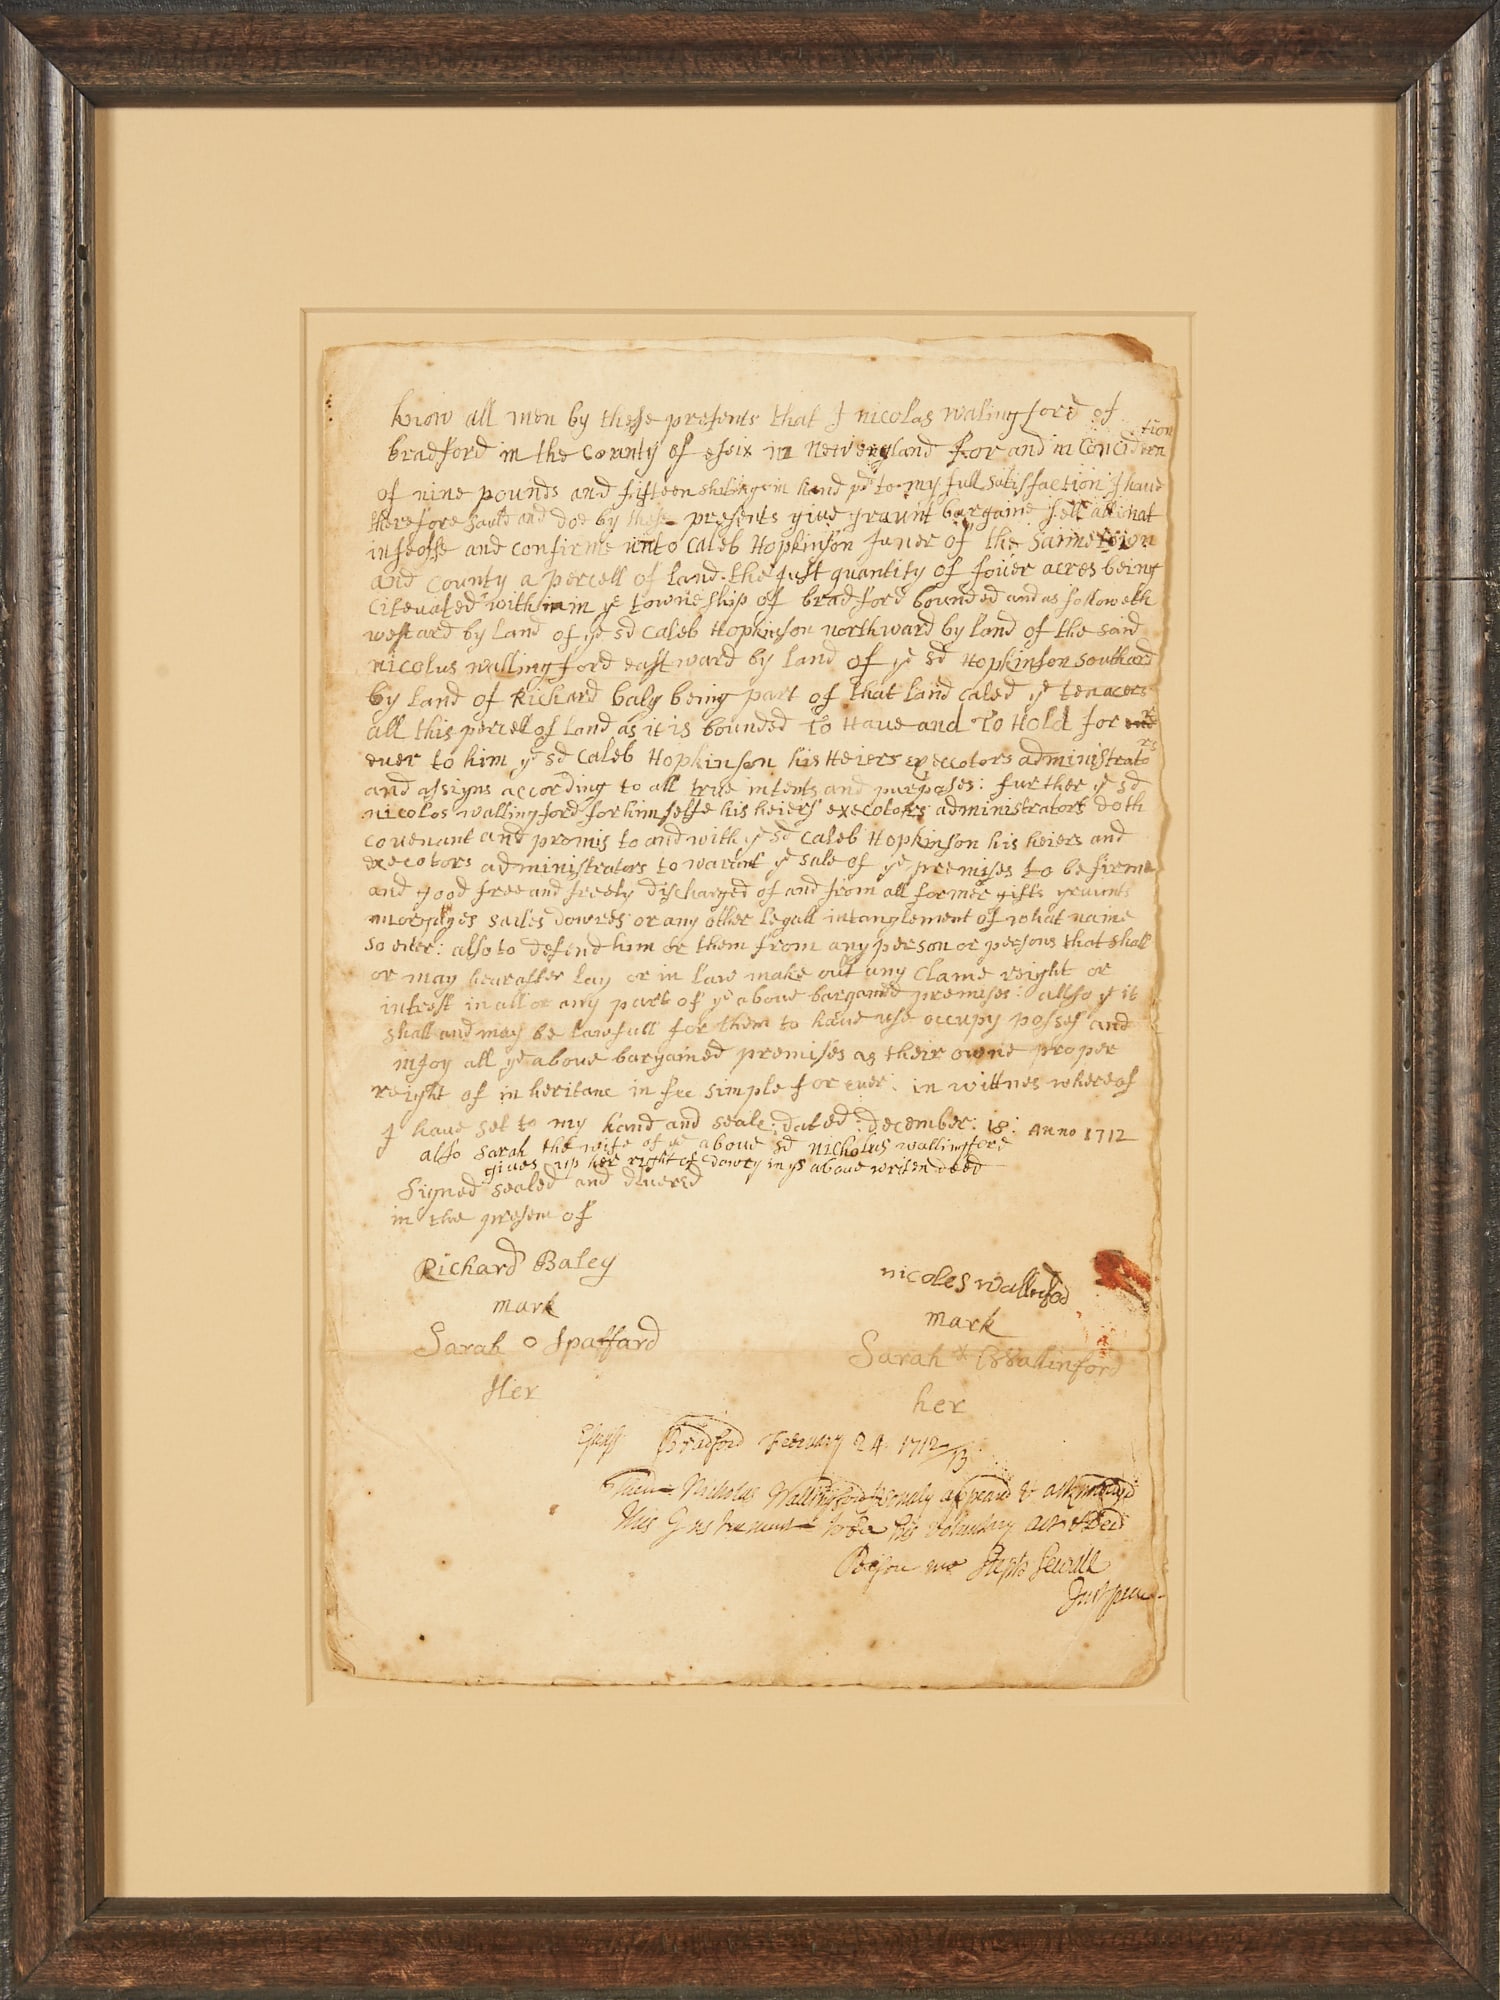 know all men by these presents that I nicolas walingford of
bradford in the County of esix in Newengland for and in Concideration
of nine pounds and fifteen shilings in hand pd to my full satisfaction I have
therefore sould and doe by these presents give graunt bargaine sell
infeoffe and confirme unto Caleb Hopkinson Juner of the same town
and County a percell of Land the Just quantity of fouer acres being
citeuated within in ye towne ship of bradford bounded and as followeth
westard by Land of ye sd Caleb Hopkinson northward by Land of the said
nicolus wallingford eastward by Land of ye sd Hopkinson southard
by Land of Richard baly being part of that Land Caled ye ten acers
all this percell of Land as it is bounded To Have and To Hold for
ever to him ye sd Caleb Hopkinson his Heiers executors administrators
and assigns according to all true intents and purposes: further ye sd
nicolos wallingford for himselfe his heiers executors administrators doth
covenant and promis to and with ye sd Caleb Hopkinson his heiers and
executors administrators to warant ye sale of ye premises to be firme
and good free and freely discharged of and from all former gifts graunts
morgages sailes dowres or any other Legall intanglement of what name
so ever: also to defend him or them from any person or persons that shall
or may hearafter Lay or in Law make out any Clame reight or
intrest in all or any part of ye above bargained premises: allso yt it
shall and may be Lawfull for them to have use occupy posses and
injoy all ye above bargained premises as their owne proper
reight of in heritanc in fee simple for ever: in wittnes whereof
I have set to my hand and seale: dated: december: 18: Anno 1712
also Sarah the wife of ye above sd nicholus wallingford
gives up her right of dowry in ys above writen deed
Signed sealed and
in the presenc of
Richard Baley
mark
Sarah o Spaffard
Her
nicoles wallinfod
mark
Sarah x Wallinford
her
Essex Bradford February 24 1712/13
Then Nicholas Wallingford sonaly apeard & acknowlegd
this Instrument to be his voluntary act & Deed
Before me Steph Sewall
Just peace